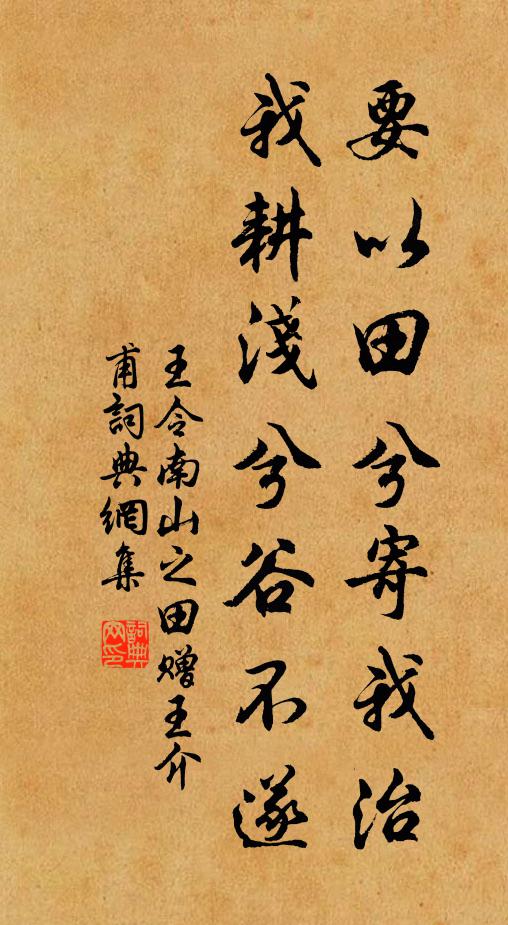 要以田兮寄我治
我耕淺兮谷不遂
王令南山之田赠王介
甫詞典網集
詞典
网印